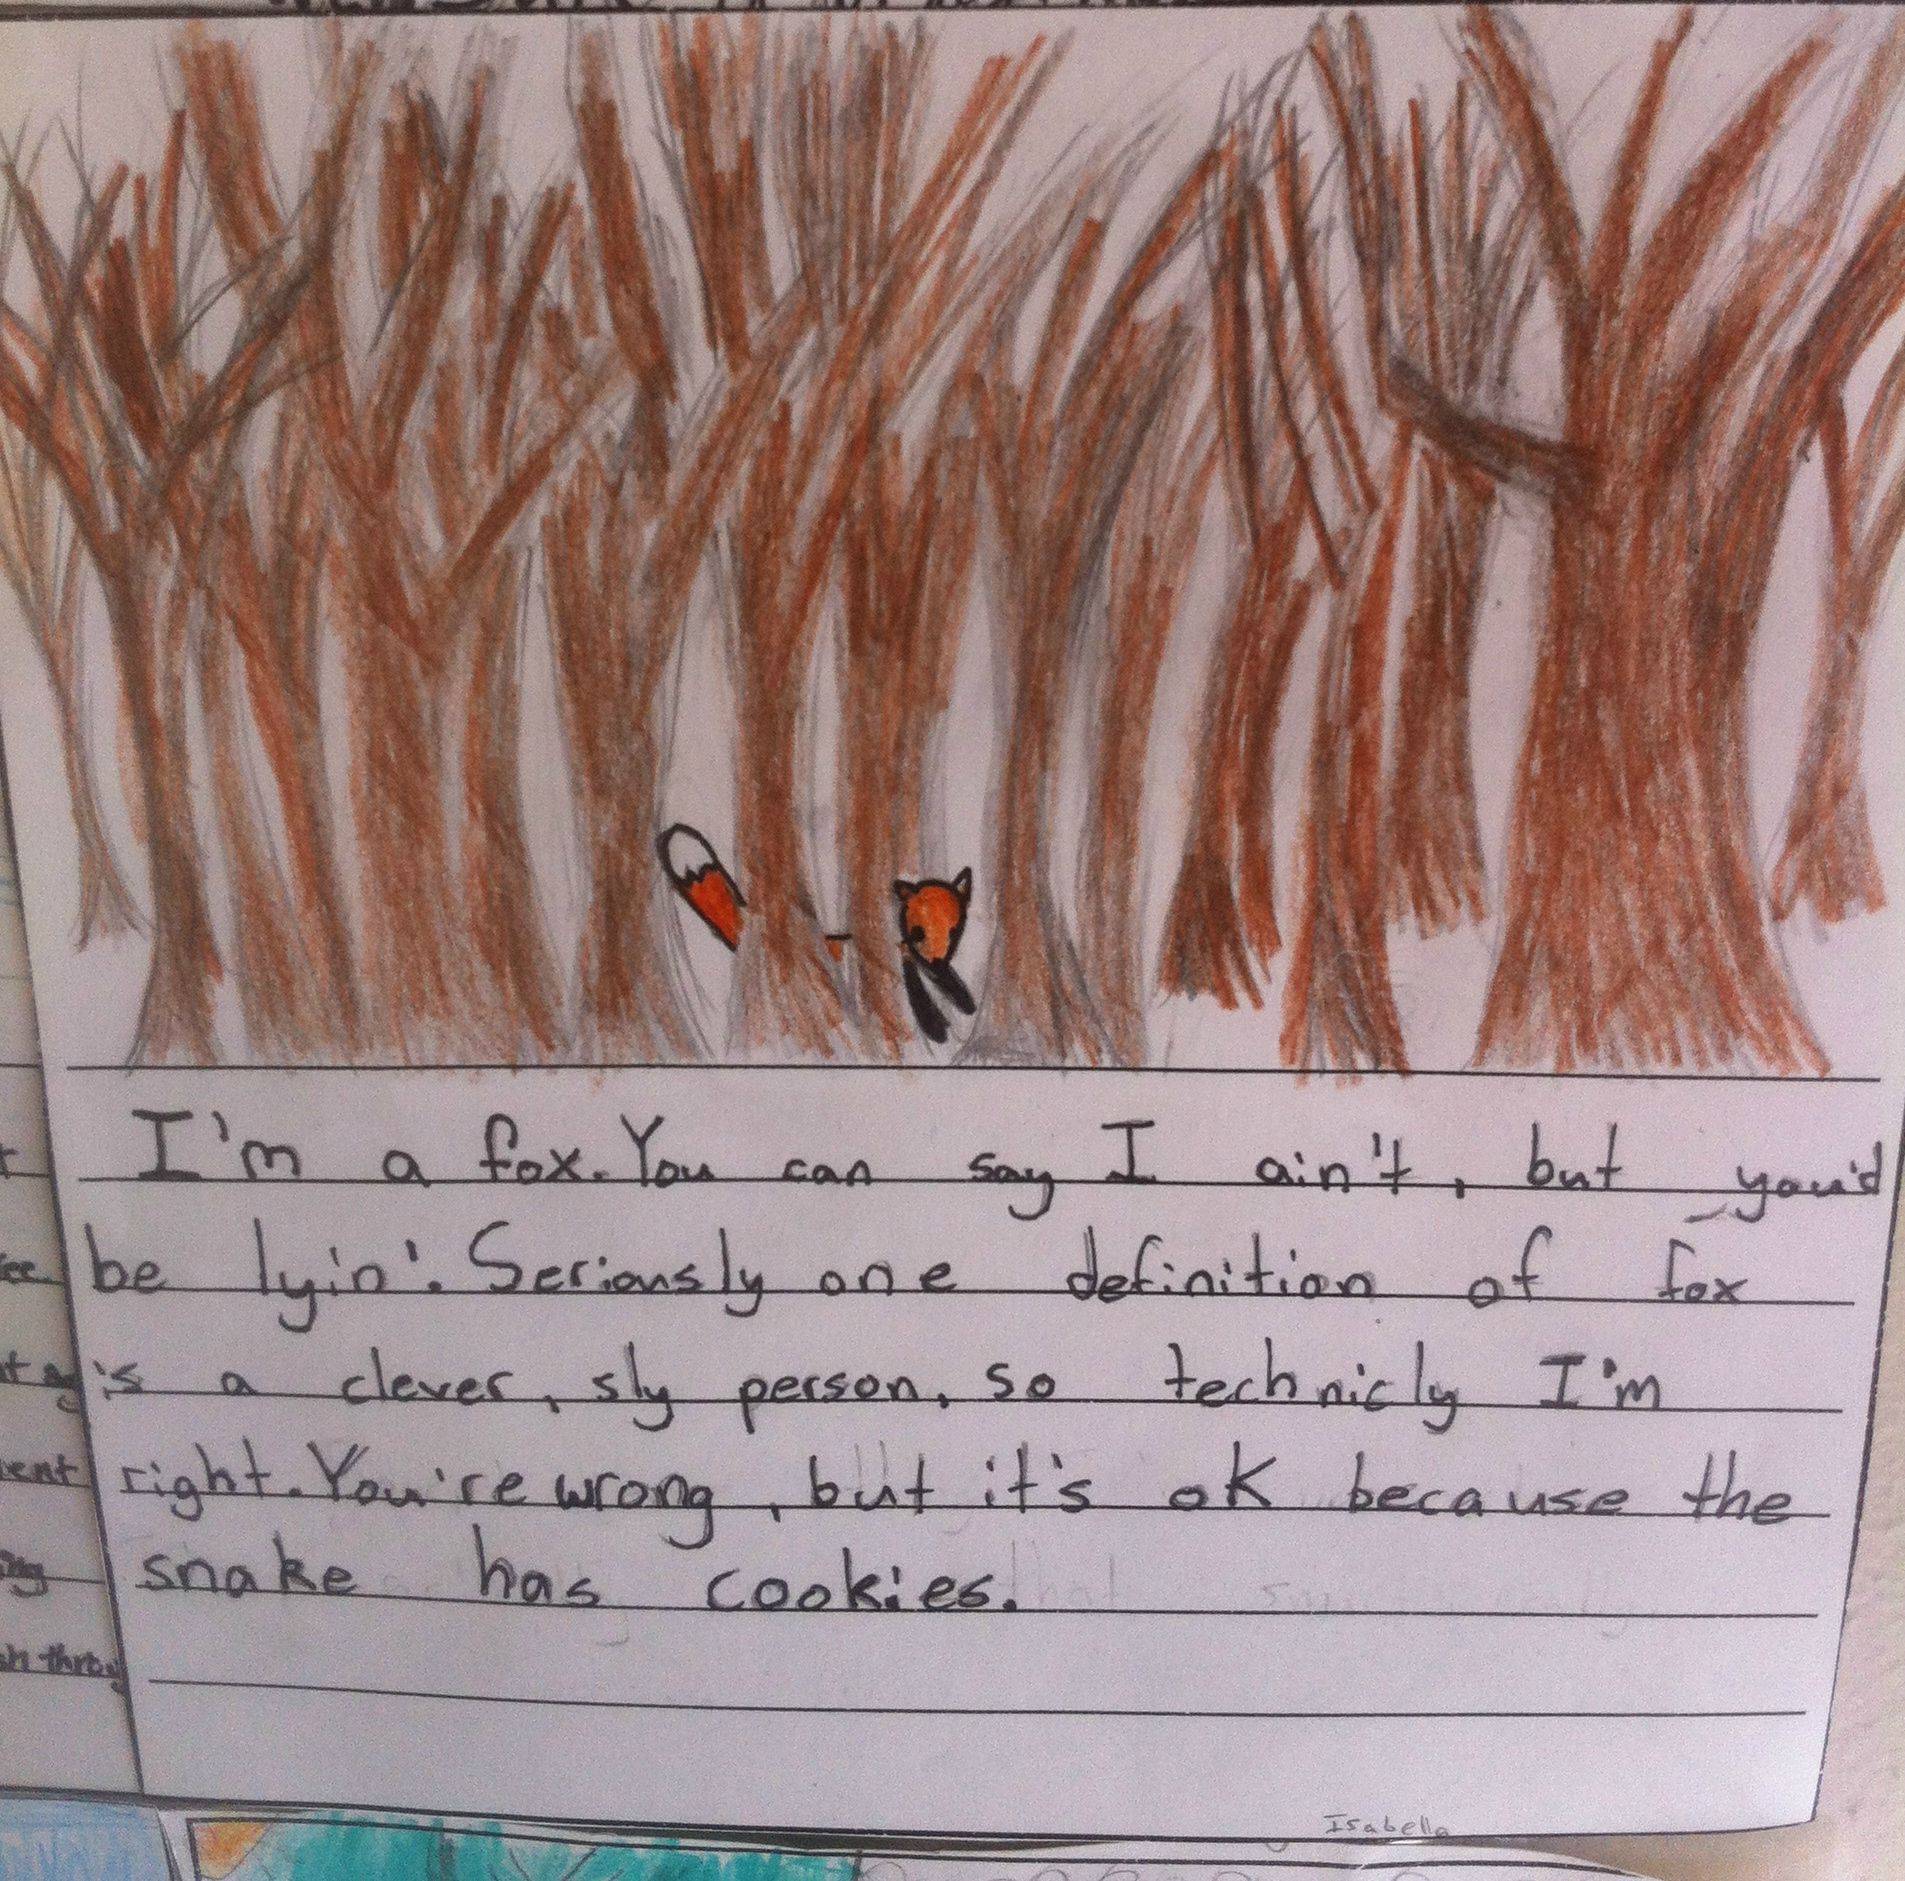 I'm a fox. You can say I ain't, but you'd
be lyin'. Seriously one definition of fox
is a clever, sly person, so technicly I'm
right. You're wrong, but it's ok because the
snake has cookies.
Isabella